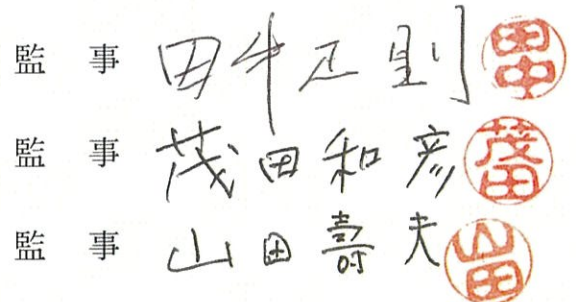 監 事 田中正則 田中
監 事 茂田和彦 茂田
監 事 山田壽夫 山田